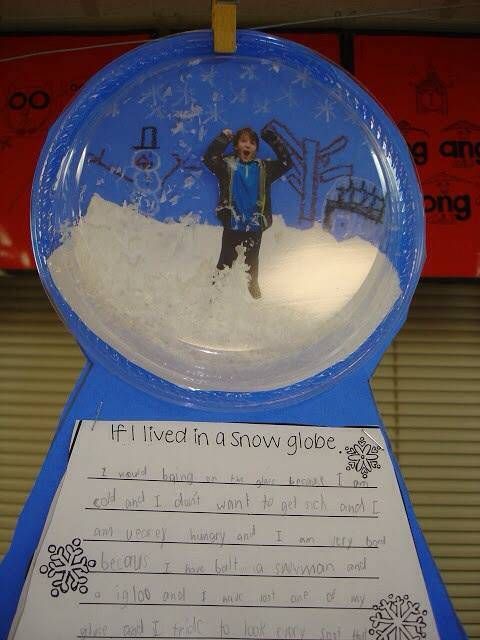 g ang
ong
If I lived in a snow globe.
I would bging on the glass because I am
cold and I don't want to get sick and I
am veerey hungry and I am very bord
becaus I have balt a snwman and
a igloo and I have lost one of my
glove and I tride to look every spot the